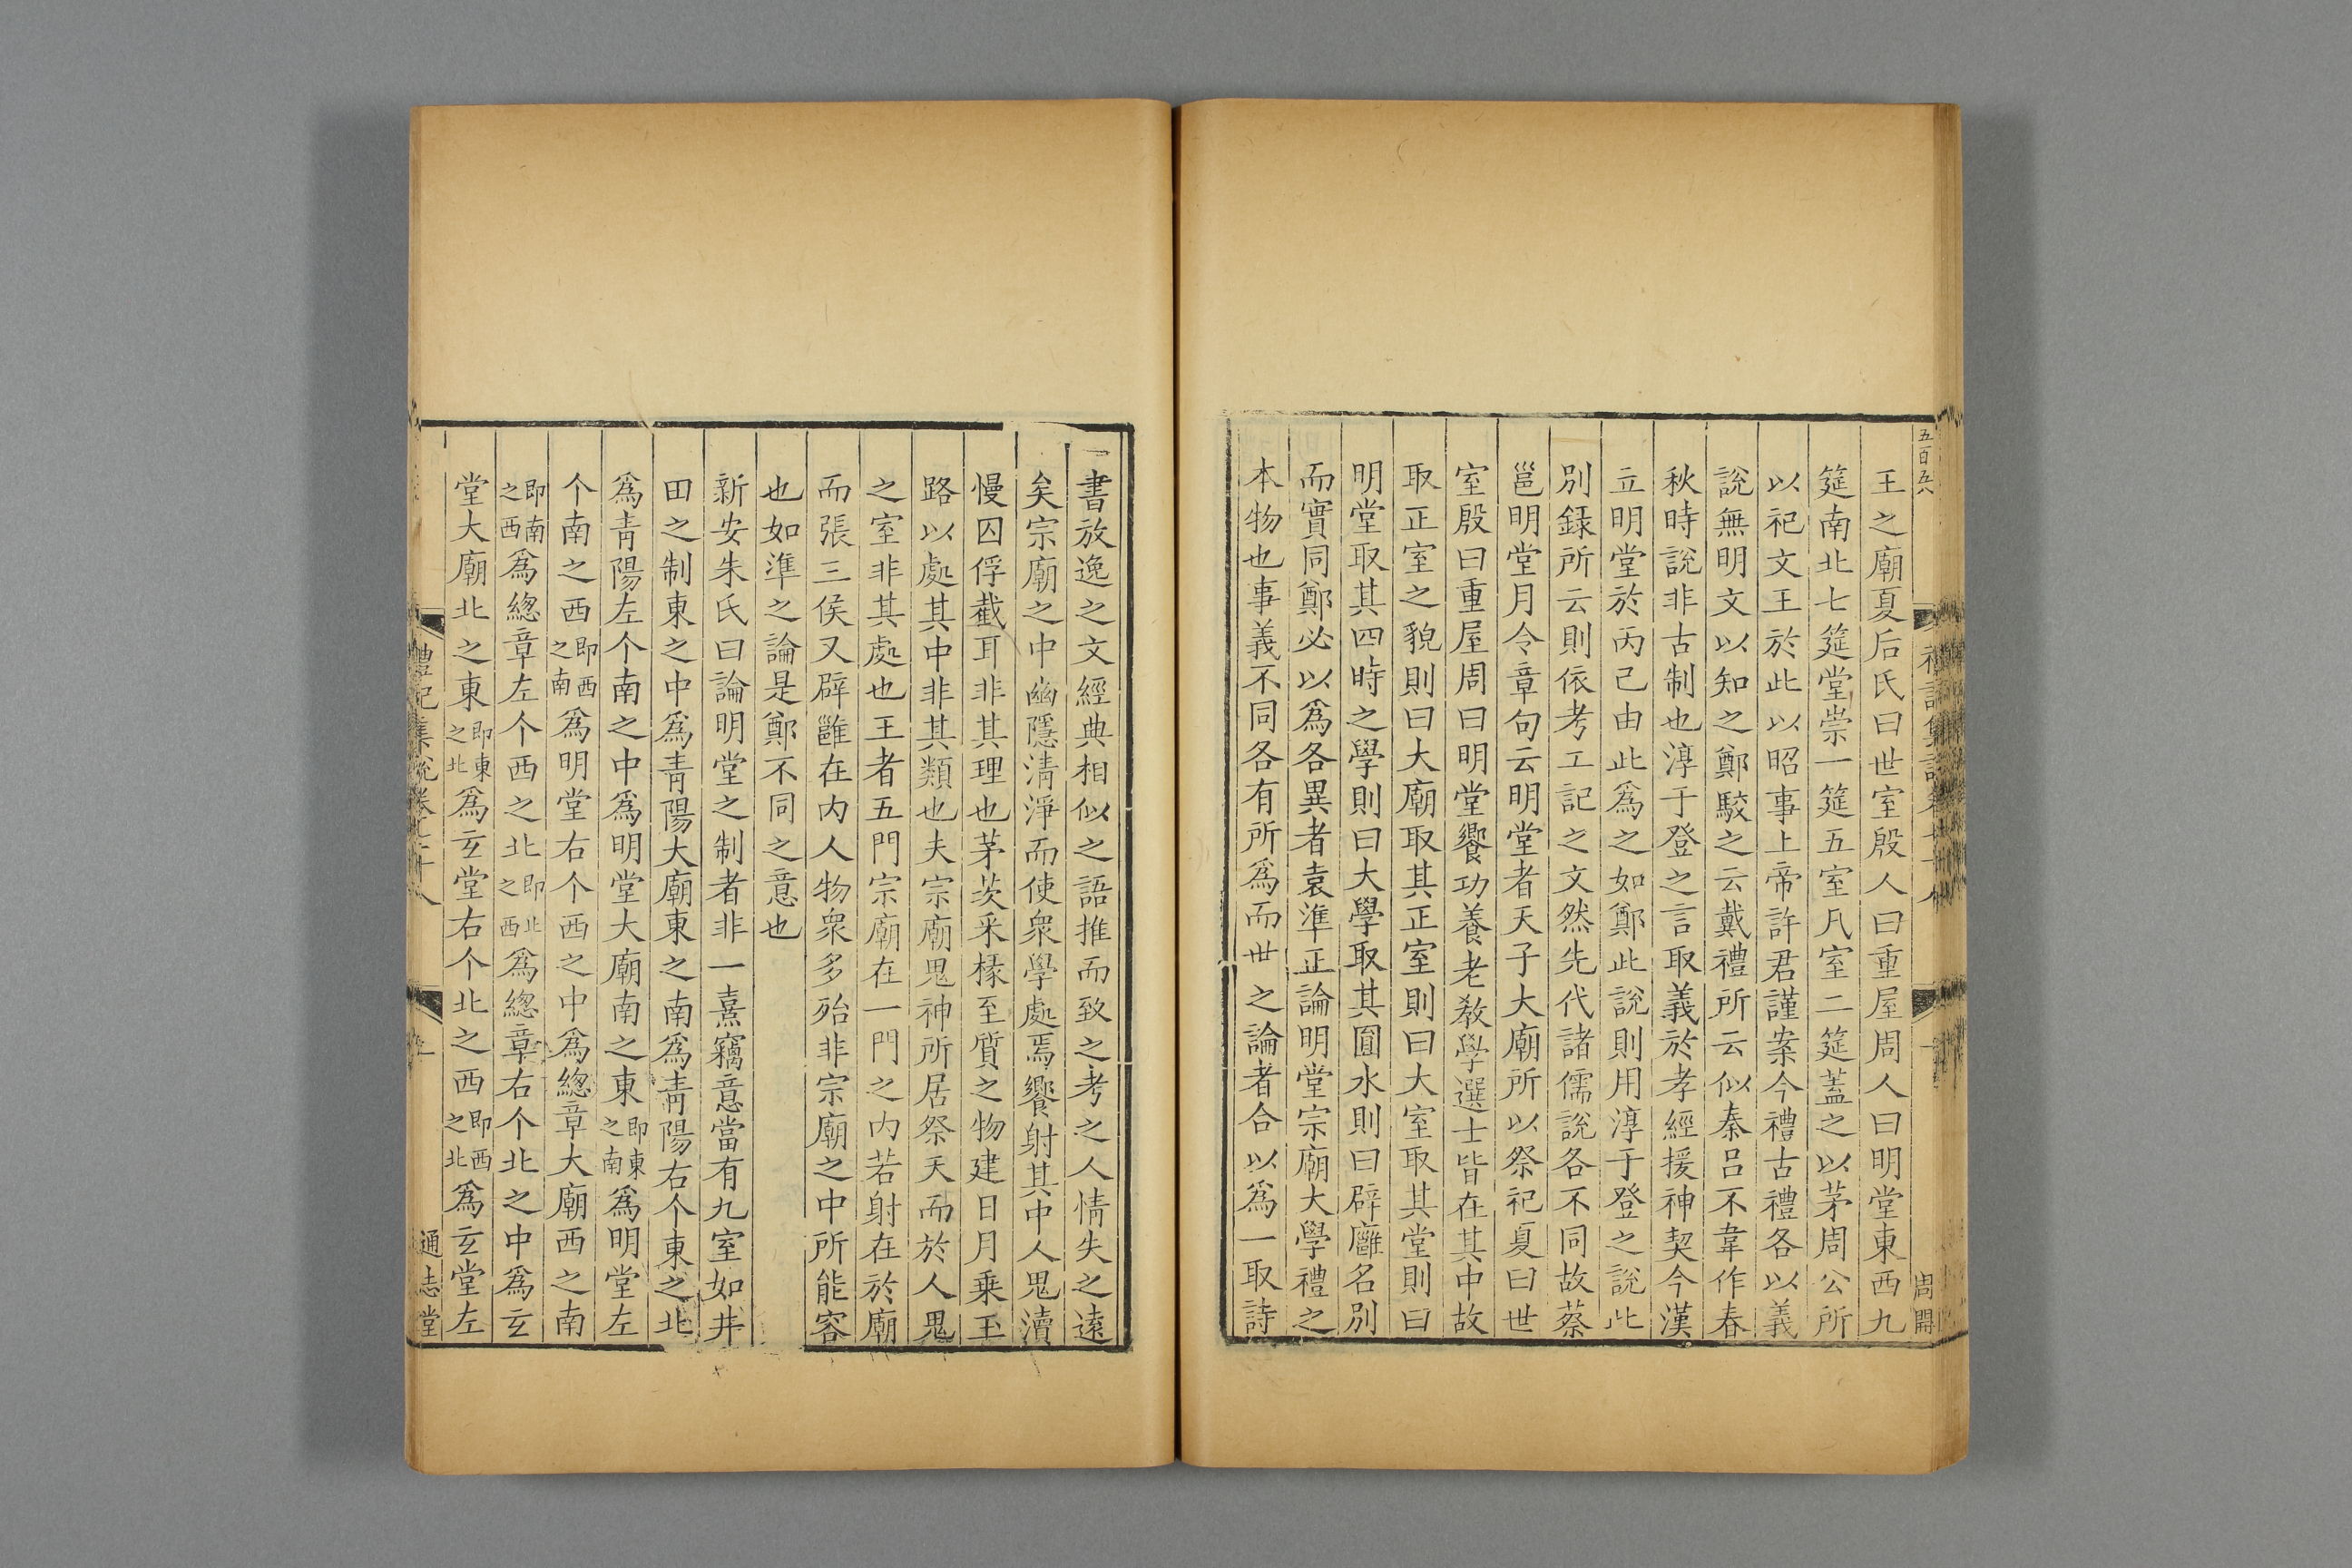 五百五八
王之廟夏后氏曰世室殷人曰重屋周人曰明堂東西九
筵南北七筵堂崇一筵五室凡室二筵蓋之以茅周公所
以祀文王於此以昭事上帝許君謹案今禮古禮各以義
說無明文以知之鄭駮之云戴禮所云似秦呂不韋作春
秋時說非古制也淳于登之言取義於孝經援神契今漢
立明堂於丙己由此爲之如鄭此說則用淳于登之說此
別録所云則依考工記之文然先代諸儒說各不同故蔡
邕明堂月令章句云明堂者天子大廟所以祭祀夏曰世
室殷曰重屋周曰明堂饗功養老敎學選士皆在其中故
取正室之貌則曰大廟取其正室則曰大室取其堂則曰
明堂取其四時之學則曰大學取其圓水則曰辟廱名別
而實同鄭必以爲各異者袁準正論明堂宗廟大學禮之
本物也事義不同各有所爲而世之論者合以爲一取詩
周開
書放逸之文經典相似之語推而致之考之人情失之遠
矣宗廟之中幽隱清淨而使衆學處焉饗射其中人鬼瀆
慢囚俘截耳非其理也茅茨采椽至質之物建日月乗玉
路以處其中非其類也夫宗廟鬼神所居祭天而於人鬼
之室非其處也王者五門宗廟在一門之内若射在於廟
而張三侯又辟雝在内人物衆多殆非宗廟之中所能容
也如準之論是鄭不同之意也
新安朱氏曰論明堂之制者非一熹竊意當有九室如井
田之制東之中爲青陽大廟東之南爲青陽右个東之北
爲青陽左个南之中爲明堂大廟南之東即東之南爲明堂左
个南之西即西之南爲明堂右个西之中爲緫章大廟西之南
即南之西爲緫章左个西之北即北之西爲緫章右个北之中爲玄
堂大廟北之東即東之北爲玄堂右个北之西即西之北爲玄堂左
禮記集說卷
通志堂